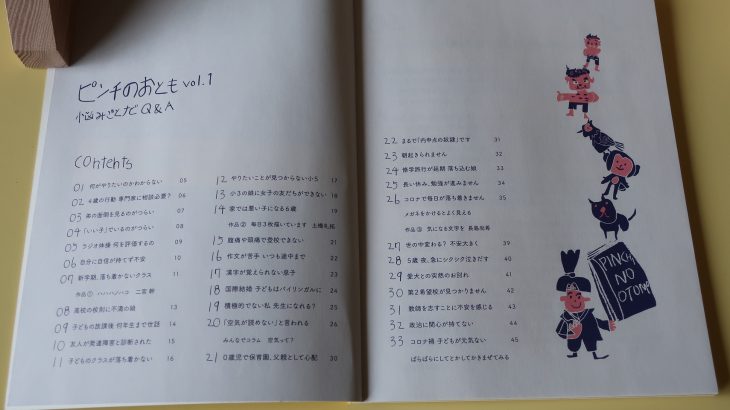 ピンチのおとも vol.1
悩みごとナビ Q&A
contents
01 何がやりたいのかわからない 05
02 4歳の行動 専門家に相談必要? 06
03 弟の面倒を見るのがつらい 07
04 「いい子」でいるのがつらい 08
05 ラジオ体操 何を評価するの 09
06 自分に自信が持てず不安 10
07 新学期、落ち着かないクラス 11
作品① ハハハンハコ 二宮
08 高校の校則に不満の娘 13
09 子どもの放課後 何年生まで世話 14
10 友人が発達障害と診断された 15
11 子どものクラスが落ち着かない 16
12 やりたいことが見つからない小5 17
13 小3の娘に女子の友だちができない 18
14 家では悪い子になる6歳 19
作品② 毎日3枚描いています 土橋
15 腹痛や頭痛で登校できない 21
16 作文が苦手 いつも途中まで 22
17 漢字が覚えられない息子 23
18 国際結婚 子どもはバイリンガルに 24
19 積極的でない私 先生になれる? 25
20 「空気が読めない」と言われる 26
みんなでコラム 空気って?
21 0歳児で保育園、父親として心配 30
22 まるで「内申点の奴隷」です 31
23 朝起きられません 32
24 修学旅行が延期 落ち込む娘 33
25 長い休み、勉強が進みません 34
26 コロナで毎日が落ち着きません 35
メガネをかけるとよく見える
作品③ 気になる文字を 長島
27 世の中変わる? 不安大きく 39
28 5歳 夜、急にシクシク泣きだす 40
29 愛犬との突然のお別れ 41
30 第2希望校が見つかりません 42
31 教師を志すことに不安を感じる 43
32 政治に関心が持てない 44
33 コロナ禍 子どもが元気ない 45
ばらばらにしてとかしてかきまぜてみる
PINCH
NO
OTOMO